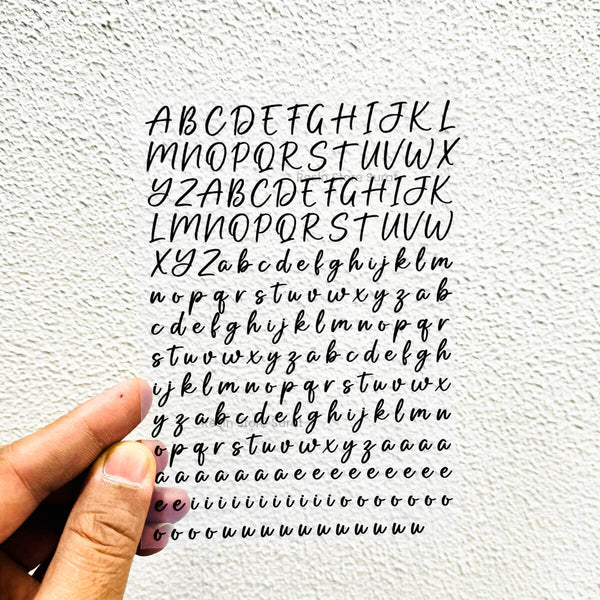 A B C D E F G H I J K L
M N O P Q R S T U V W X
Y Z A B C D E F G H I J K
L M N O P Q R S T U V W
X Y Z a b c d e f g h i j k l m
n o p q r s t u v w x y z a b
c d e f g h i j k l m n o p q r
s t u v w x y z a b c d e f g h
i j k l m n o p q r s t u v w x
y z a b c d e f g h i j k l m n
o p q r s t u v w x y z a a a a
a a a a a a a a e e e e e e e e e
e e i i i i i i i i i i i o o o o o o o
o o o o u u u u u u u u u u u u
Resin Store Surat
Resin Store Surat